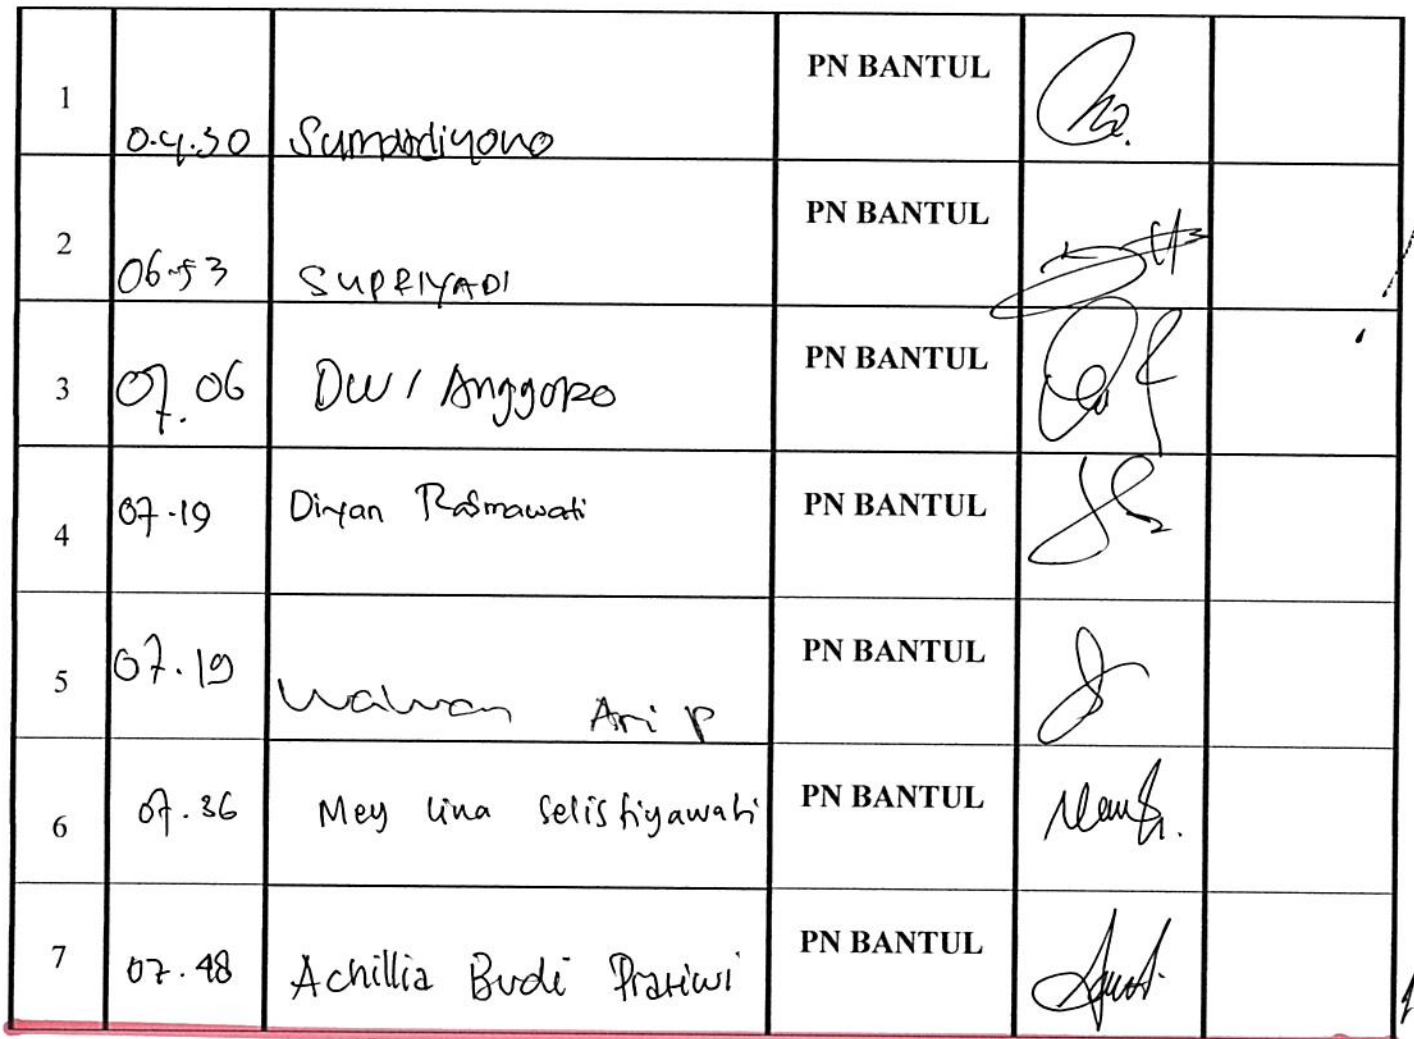 1 0.4.30 Sumardiyono PN BANTUL
2 06.53 SUPRIYADI PN BANTUL
3 07.06 Dwi Anggoro PN BANTUL
4 07.19 Diyan Rasmawati PN BANTUL
5 07.19 Wawan Ari P PN BANTUL
6 07.36 Mey Lina Selistiyawati PN BANTUL
7 07.48 Achillia Budi Pratiwi PN BANTUL